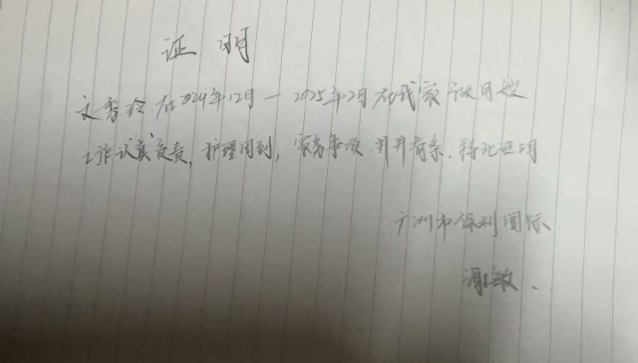 证明
文秀玲在2024年12月一2025年2月在我家做月嫂
工作认真负责,护理周到,家务事项井井有条.特此证明
广州市保利国际
敏.